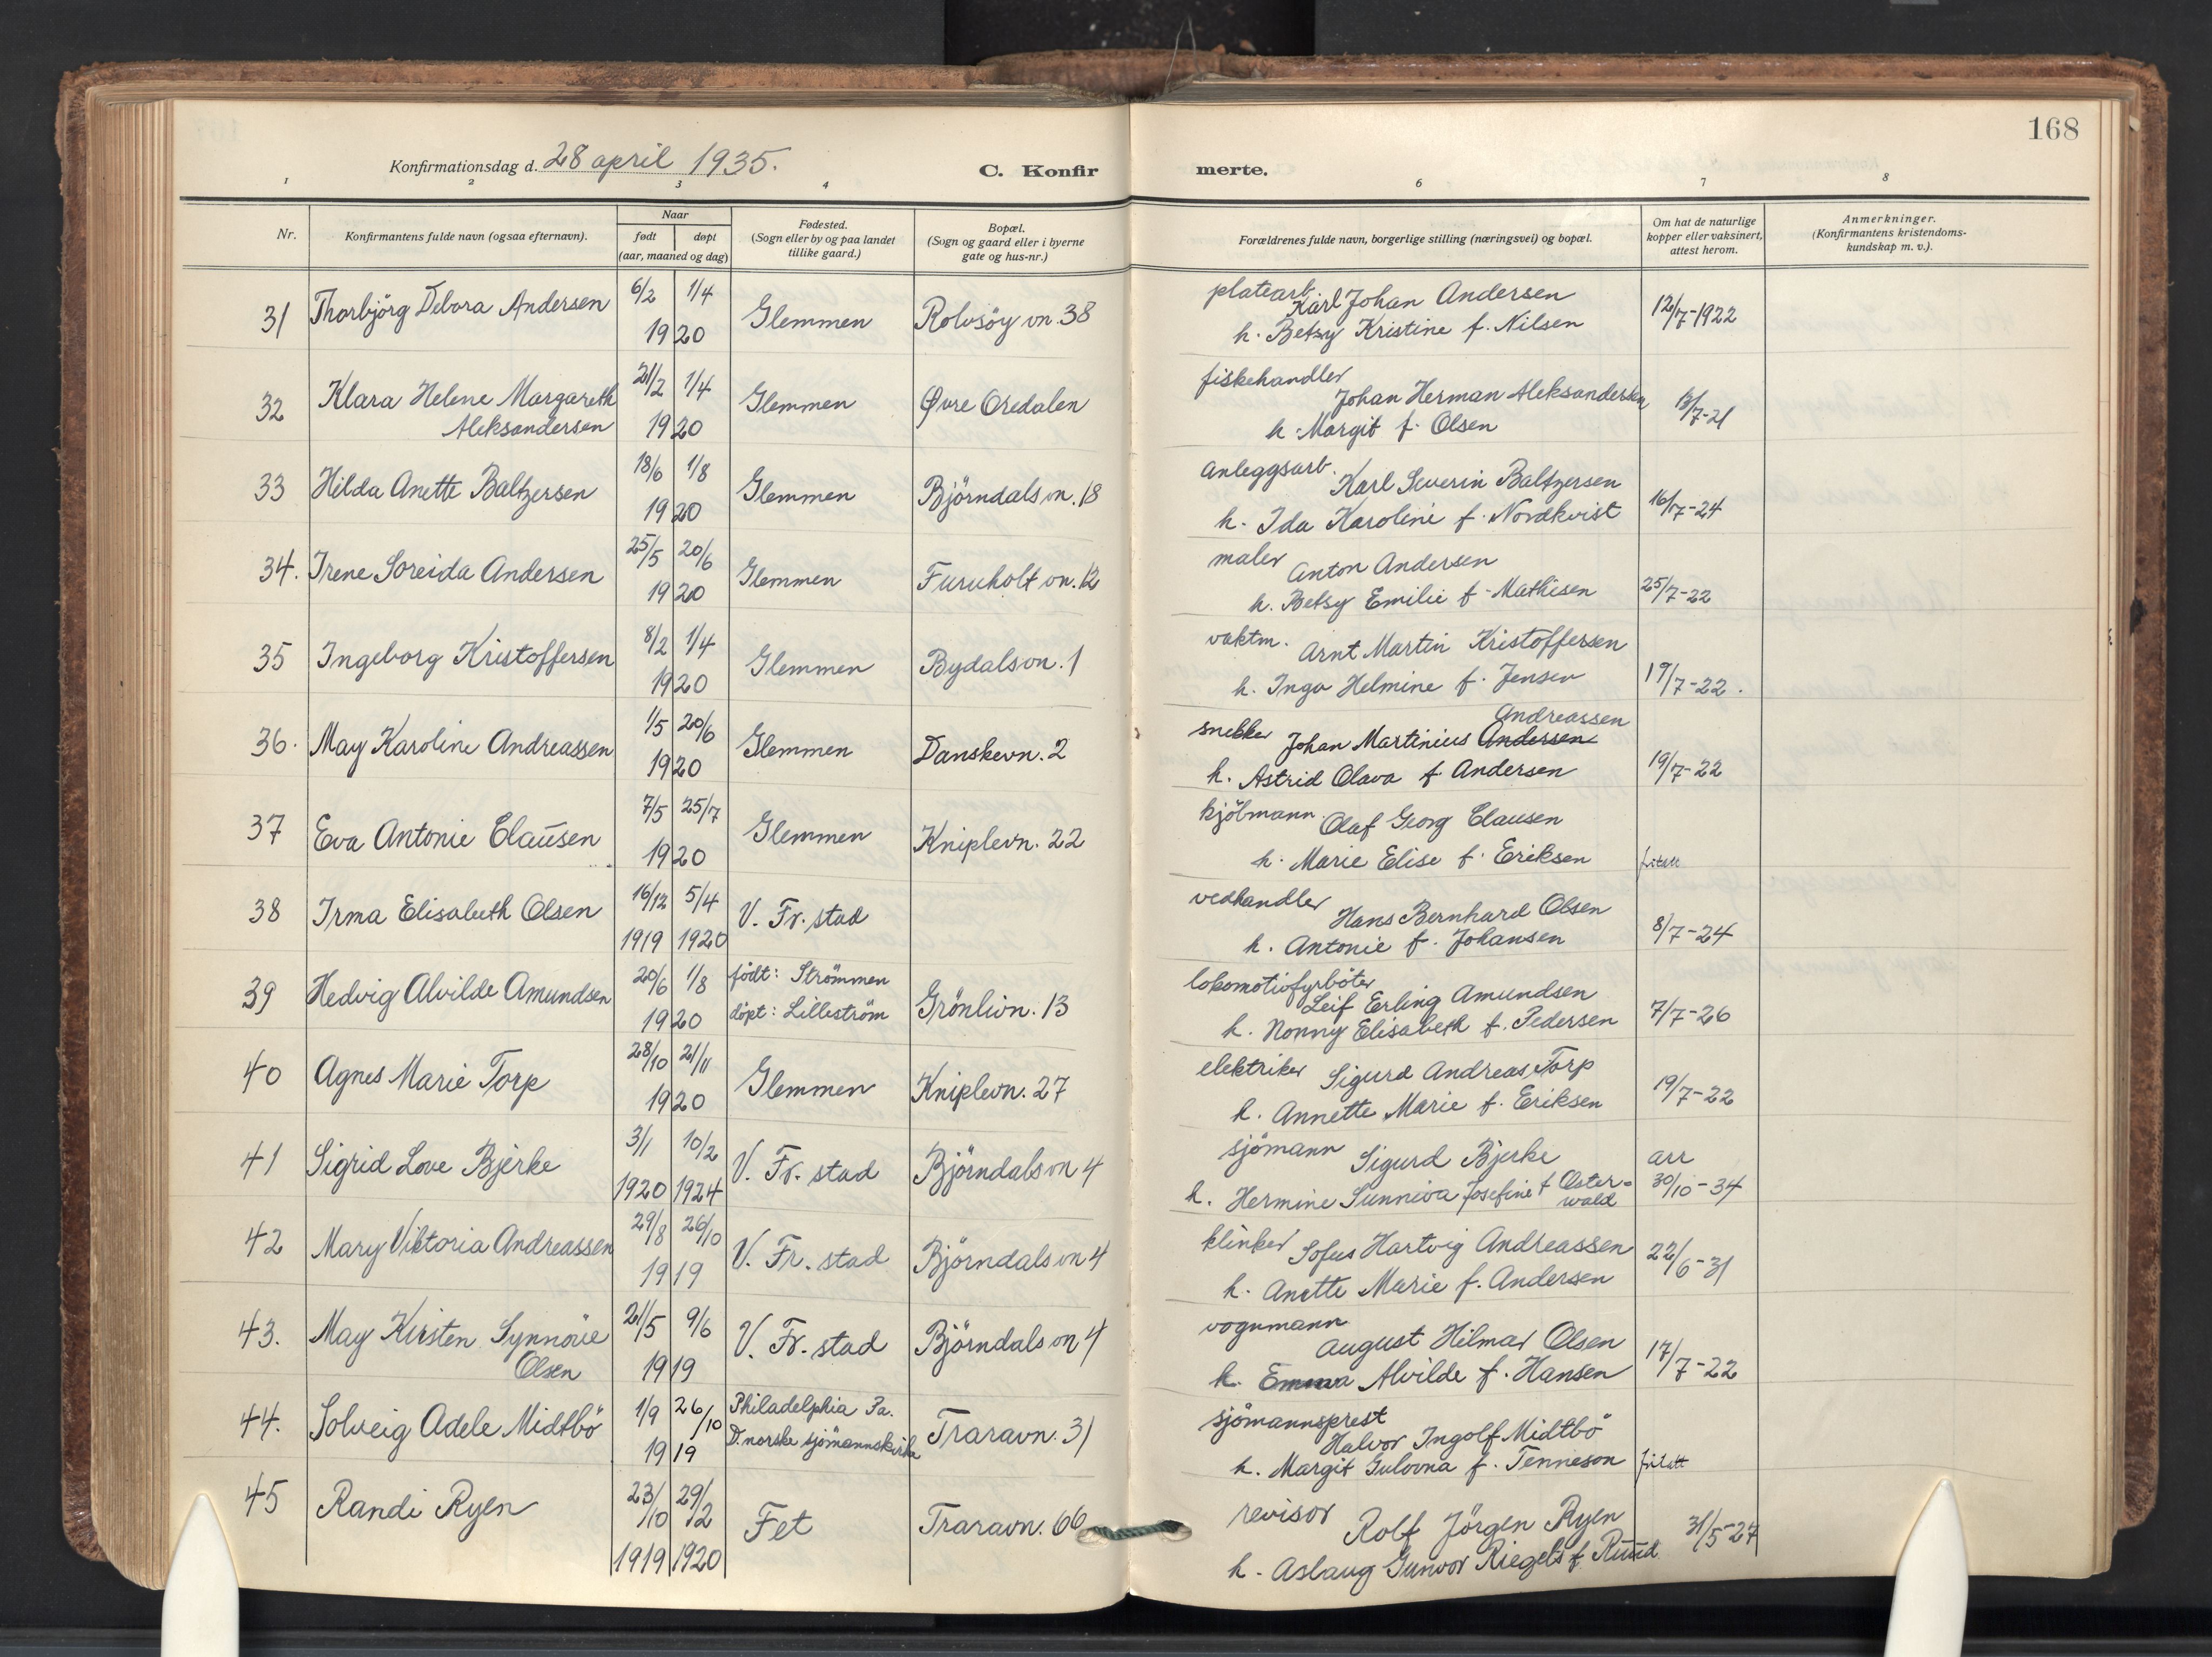 168
Konfirmationsdag d. 28 april 1935.
C. Konfir
merte.
1 2 3 4 6 7 8
Nr.
Konfirmantens fulde navn (ogsaa efternavn).
Naar
født døpt
(aar, maaned og dag)
Fødested.
(Sogn eller by og paa landet
tillike gaard.)
Bopæl.
(Sogn og gaard eller i byerne
gate og hus-nr.)
Forældrenes fulde navn, borgerlige stilling (næringsvei) og bopæl.
Om hat de naturlige
kopper eller vaksinert,
attest herom.
Anmerkninger.
(Konfirmantens kristendoms-
kundskap m. v.).
31 Thorbjörg Debora Andersen 6/2 1/4 1920 Glemmen Rolvsöy vn. 38
platearb. Karl Johan Andersen
h. Betzy Kristine f. Nilsen 12/7-1922
32 Klara Helene Margareth
Aleksandersen 21/2 1/4 1920 Glemmen Øvre Oredalen
fiskehandler
Johan Herman Aleksandersen
h. Margit f. Olsen 13/7-21
33 Hilda Anette Baltzersen 18/6 1/8 1920 Glemmen Björndals vn. 18
anleggsarb. Karl Severin Baltzersen
h. Ida Karoline f. Nordkvist 16/7-24
34. Irene Soreida Andersen 25/5 20/6 1920 Glemmen Furuholt vn. 12
maler Anton Andersen
h. Betsy Emilie f. Mathisen 25/7-22
35 Ingeborg Kristoffersen 8/2 1/4 1920 Glemmen Bydalsvn. 1
vaktm. Arnt Martin Kristoffersen
h. Inga Helmine f. Jensen 17/7-22.
36. May Karoline Andreassen 1/5 20/6 1920 Glemmen Danskevn. 2
Andreassen
snekker Johan Martinius Andersen
h. Astrid Olava f. Andersen 19/7-22
37 Eva Antonie Clausen 7/5 25/7 1920 Glemmen Kniplevn. 22
kjölmann Olaf Georg Clausen
h. Marie Elise f. Eriksen fritatt
38 Irma Elisabeth Olsen 16/12 5/4 1919 1920 V. Fr. stad
vedhandler
Hans Bernhard Olsen
h. Antonie f. Johansen 8/7-24
39 Hedvig Alvilde Amundsen 20/6 1/8 1920 født: Strömmen
döpt: Lilleström Grönlivn. 13
lokomotivfyrböter
Leif Erling Amundsen
h. Nonny Elisabeth f. Pedersen 7/7-26
40 Agnes Marie Torp 28/10 21/11 1920 Glemmen Kniplevn. 27
elektriker Sigurd Andreas Torp
h. Annette Marie f. Eriksen 19/7-22
41 Sigrid Love Bjerke 3/1 10/2 1920 1924 V. Fr. stad Björndals vn 4
sjömann Sigurd Bjerke arr
h. Hermine Sunniva Josefine f Oster-
wald 30/10-34
42 Mary Viktoria Andreassen 29/8 26/10 1919 V. Fr. stad Björndals vn 4
klinker Sofus Hartvig Andreassen
h. Anette Marie f. Andersen 22/6-31
43. May Kirsten Synnöve
Olsen 21/5 9/6 1919 V. Fr. stad Björndals vn 4
vognmann
August Hilmar Olsen
h. Emma Alvilde f. Hansen 17/7-22
44. Solveig Adele Midtbö 1/9 26/10 1919 Philadelphia Pa.
D. norske sjömannskirke Traravn. 31
sjömannsprest
Halvor Ingolf Midtbö
h. Margit Gulovna f. Tenneson fritatt
45 Randi Ryen 23/10 29/2 1919 1920 Fet Traravn. 66
revisor Rolf Jörgen Ryen
h. Aslaug Gunvor Riegels f. Ruud 31/5-27